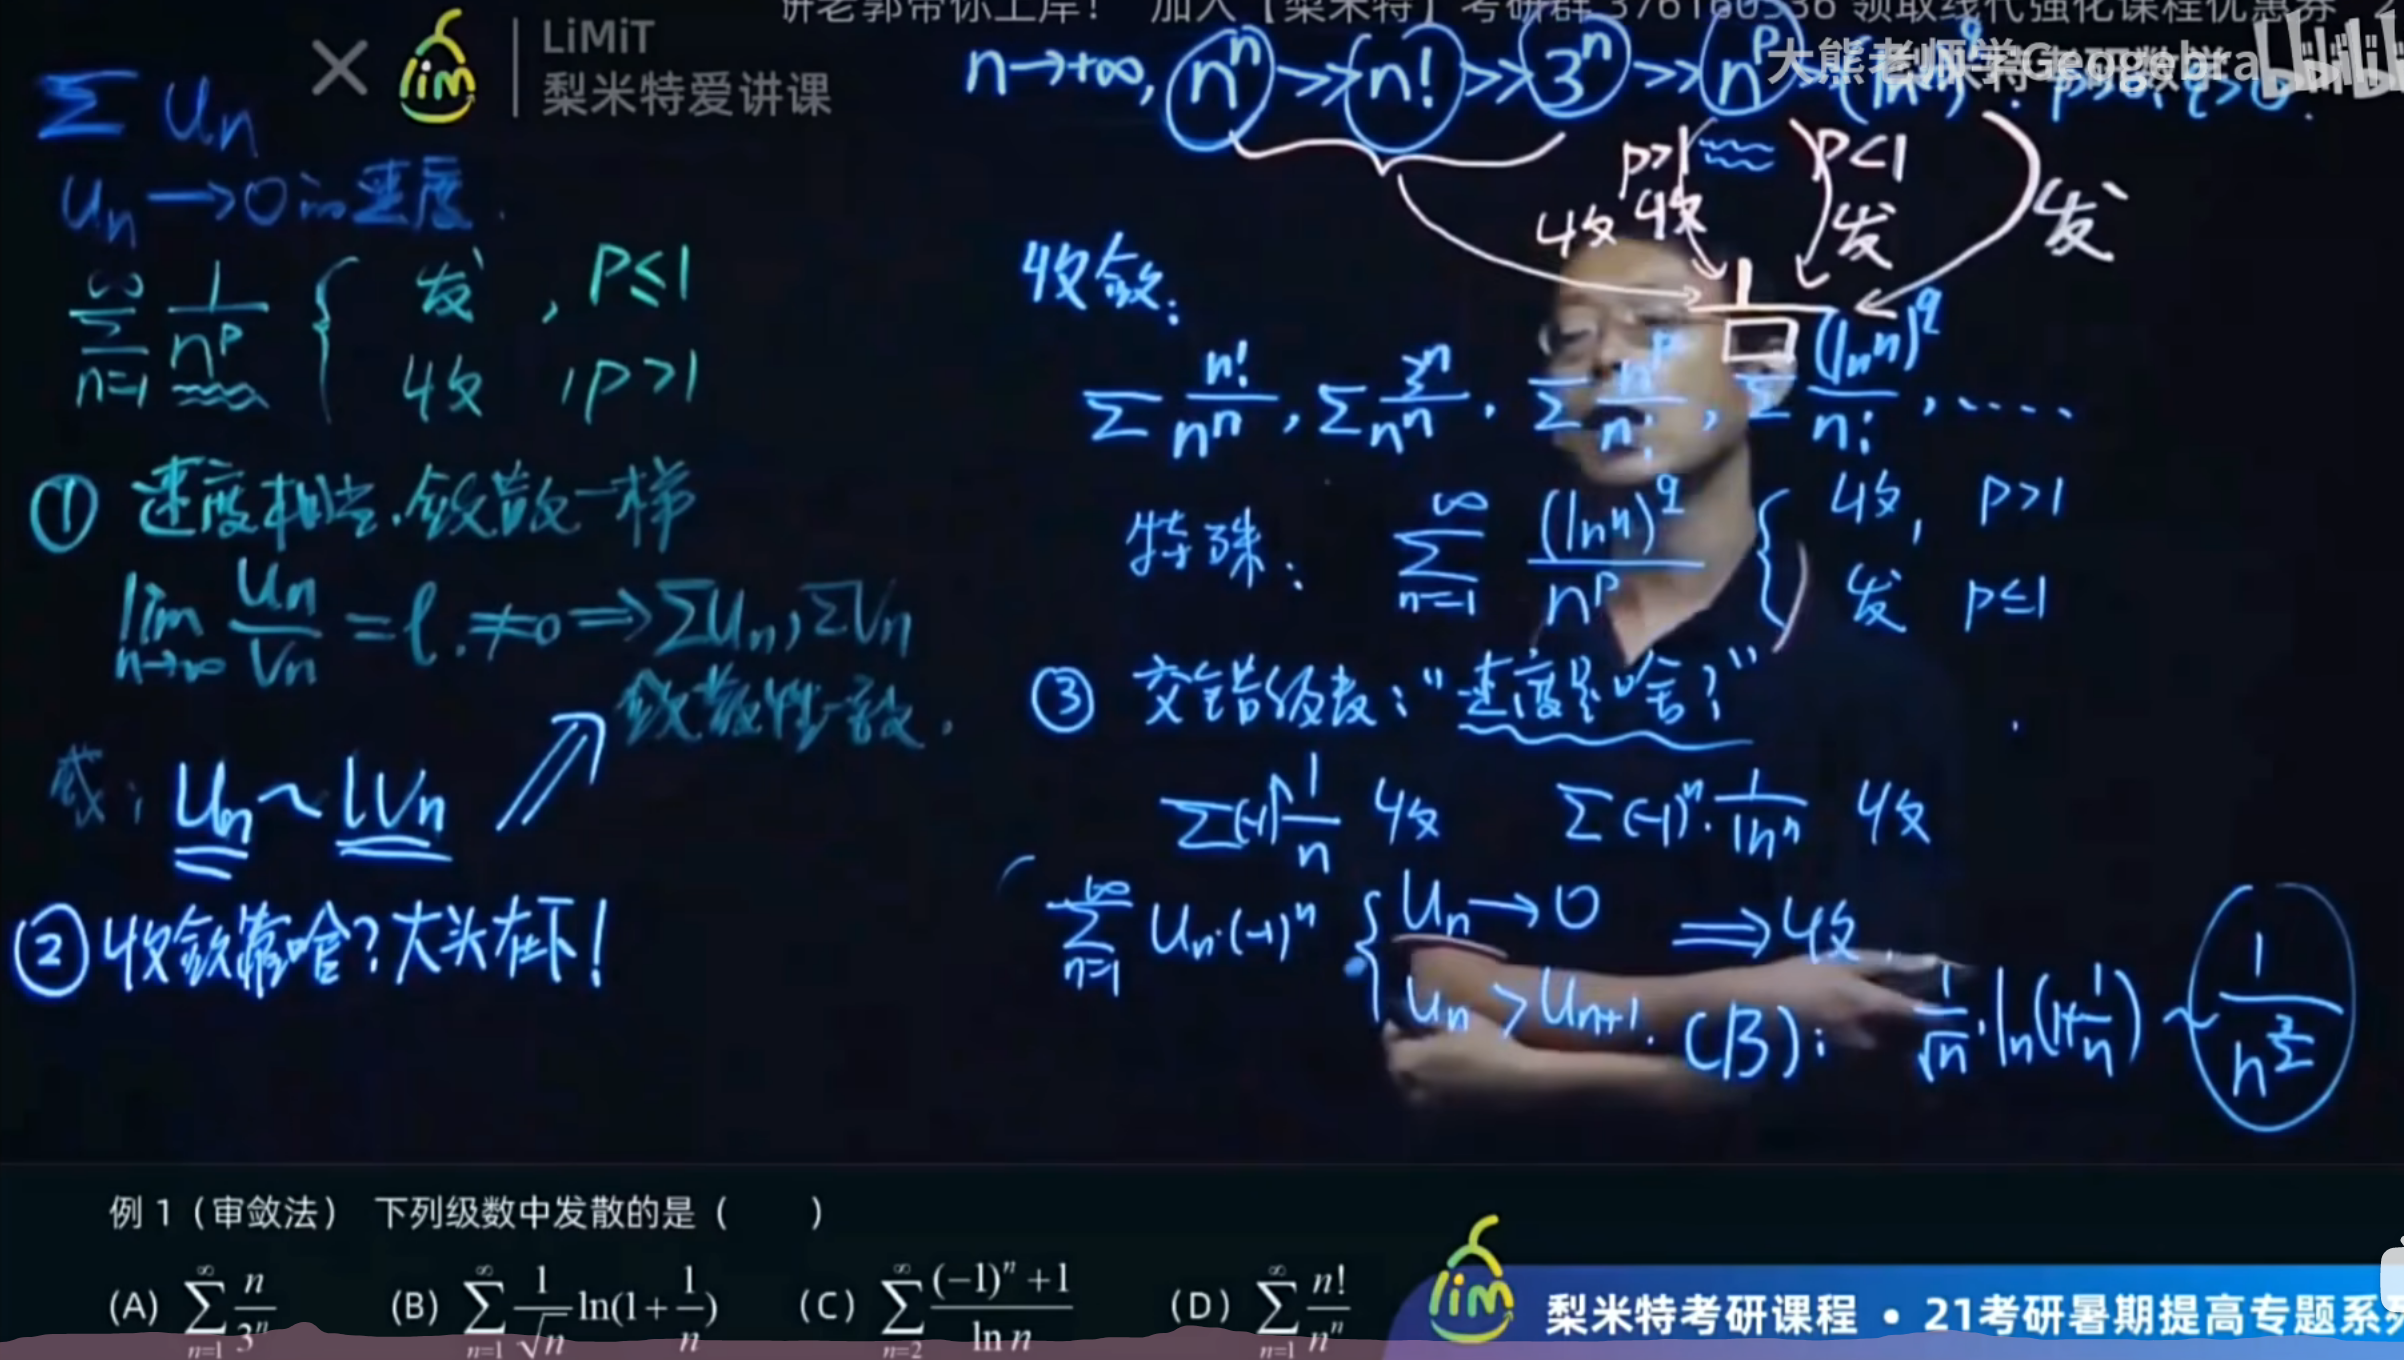 研老郭带你上岸！ 加入【梨米特】考研群 376160336 领取线代强化课程优惠券
LiMiT
梨米特爱讲课
lim
大熊老师学Geogebra
bilibili
n→+∞, n^n >> n! >> 3^n >> n^p >> (ln n)^q. p>0, q>0.
∑ u_n
u_n → 0 的速度.
∑_{n=1}^{∞} 1/n^p { 发, p≤1
收, p>1
① 速度相当, 敛散一样
lim_{n→∞} u_n/v_n = l. ≠0 ⇒ ∑u_n, ∑v_n
敛散性一致.
或: u_n ~ l v_n
② 收敛靠啥? 大头在下!
p>1 p<1
收 收 发 发
1/□
收敛:
∑ n!/n^n, ∑ 3^n/n^n, ∑ n^p/n!, ∑ (ln n)^q/n!, ......
特殊: ∑_{n=1}^{∞} (ln n)^q/n^p { 收, p>1
发 p≤1
③ 交错级数: "速度是啥?"
∑(-1)^n 1/n 收 ∑(-1)^n · 1/ln n 收
∑_{n=1}^{∞} u_n·(-1)^n { u_n → 0 ⇒ 收.
u_n > u_{n+1}.
(B): 1/√n · ln(1+1/n) ~ 1/n^{3/2}
例 1（审敛法） 下列级数中发散的是（ ）
(A) ∑_{n=1}^{∞} n/3^n (B) ∑_{n=1}^{∞} 1/√n ln(1+1/n) (C) ∑_{n=2}^{∞} ((-1)^n+1)/ln n (D) ∑_{n=1}^{∞} n!/n^n
lim
梨米特考研课程 • 21考研暑期提高专题系列